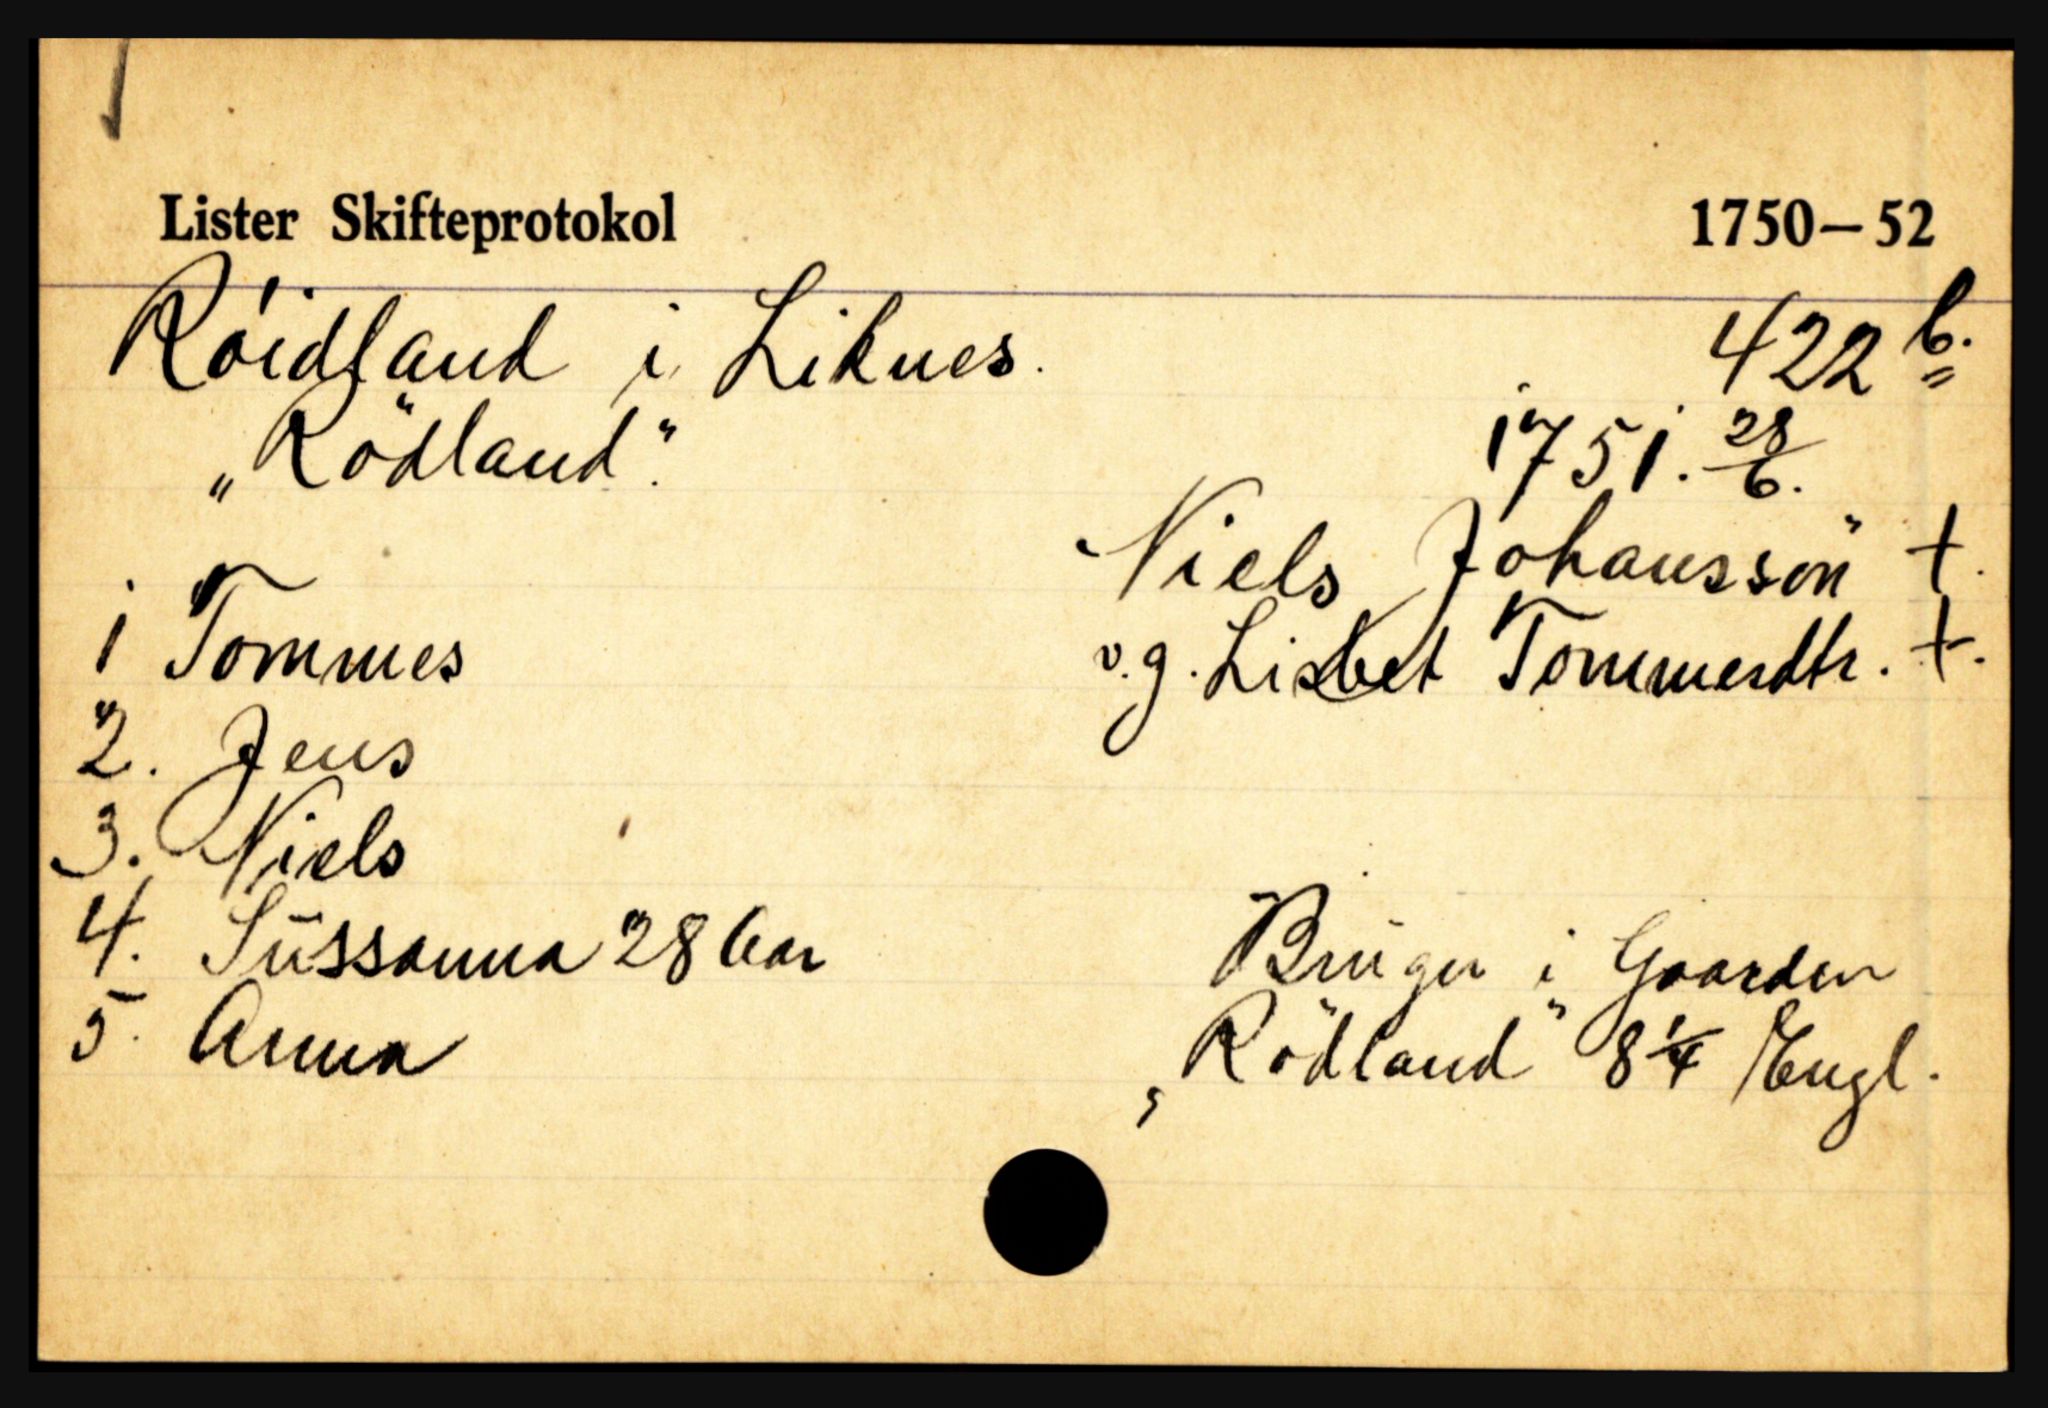 Lister Skifteprotokol 1750—52
Röidland i Liknes. 422 b.
„Rödland". 1751. 28/6.
Niels Johanssön +.
1 Tommes v.g. Lisbet Tommesdtr. +.
2. Jens
3. Niels
4. Sŭssanna 28 aar Brŭger i Gaarden
5. Anna „Rödland" 8 1/4 Engl.